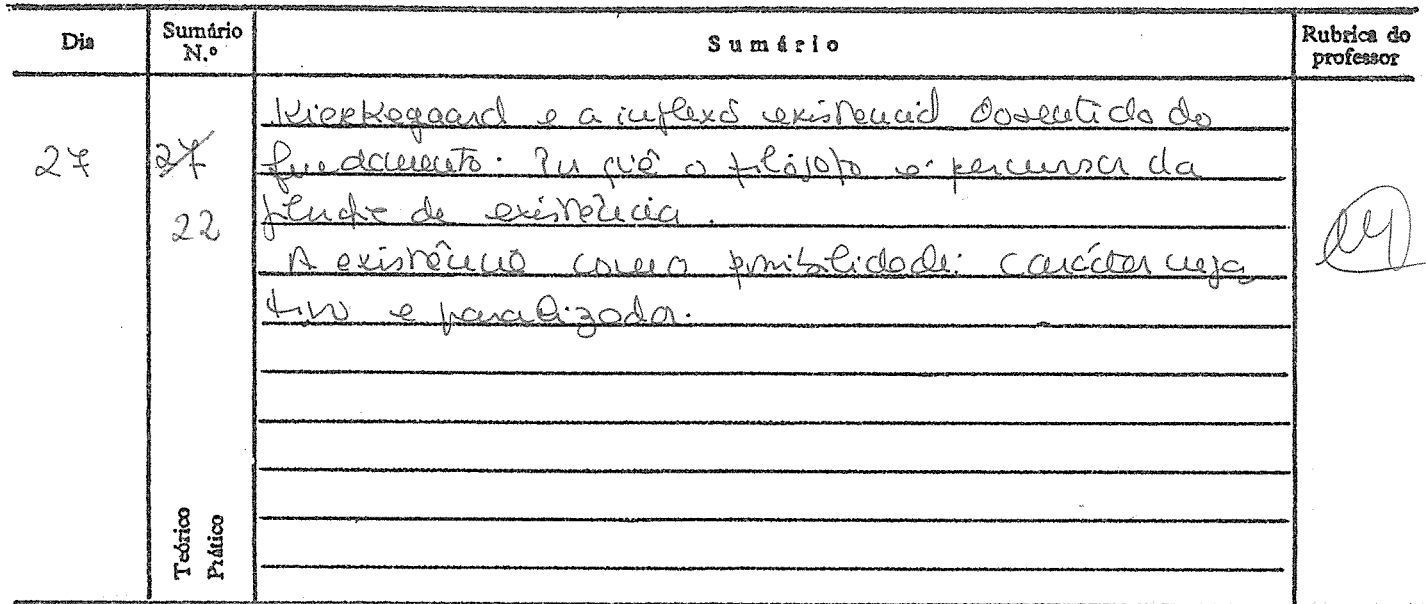 Dia Sumário N.º Sumário Rubrica do professor
27 27 22
Kierkegaard e a inflexão existencial do sentido do
fundamento. Por quê o filósofo é percursor da
de existência.
A existência como possibilidade: carácter nega
tivo e paralizador.
Teórico
Prático